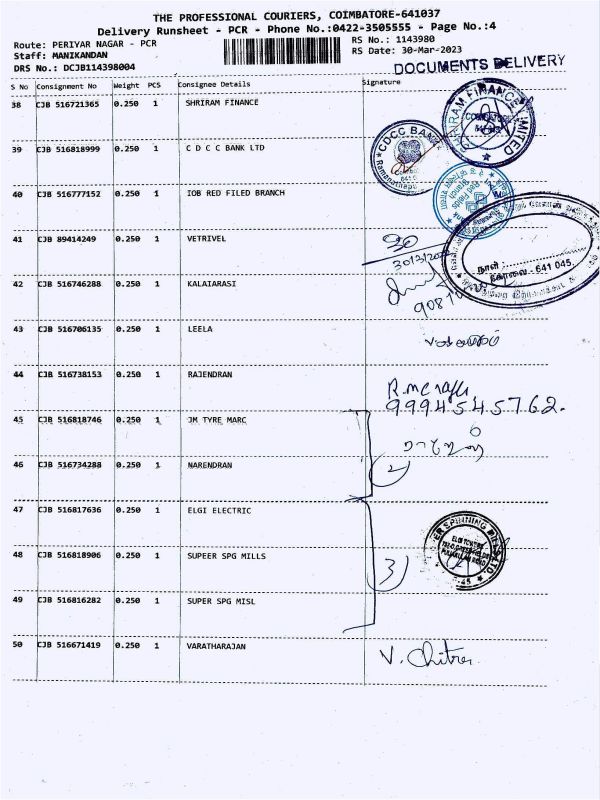 THE PROFESSIONAL COURIERS, COIMBATORE-641037
Delivery Runsheet - PCR - Phone No.:0422-3505555 - Page No.:4
Route: PERIYAR NAGAR - PCR
Staff: MANIKANDAN
DRS No.: DCJB114398004
RS No.: 1143980
RS Date: 30-Mar-2023
DOCUMENTS DELIVERY
S No Consignment No Weight PCS Consignee Details Signature
38 CJB 516721365 0.250 1 SHRIRAM FINANCE
39 CJB 516818999 0.250 1 C D C C BANK LTD
CDCC BANK
40 CJB 516777152 0.250 1 IOB RED FILED BRANCH
41 CJB 89414249 0.250 1 VETRIVEL
நாள் :
கோவை - 641 045.
42 CJB 516746288 0.250 1 KALAIARASI
43 CJB 516706135 0.250 1 LEELA
44 CJB 516738153 0.250 1 RAJENDRAN
9994545762.
45 CJB 516818746 0.250 1 JM TYRE MARC
46 CJB 516734288 0.250 1 NARENDRAN
2
47 CJB 516817636 0.250 1 ELGI ELECTRIC
48 CJB 516818906 0.250 1 SUPEER SPG MILLS
3
49 CJB 516816282 0.250 1 SUPER SPG MISL
50 CJB 516671419 0.250 1 VARATHARAJAN
V. Chitra